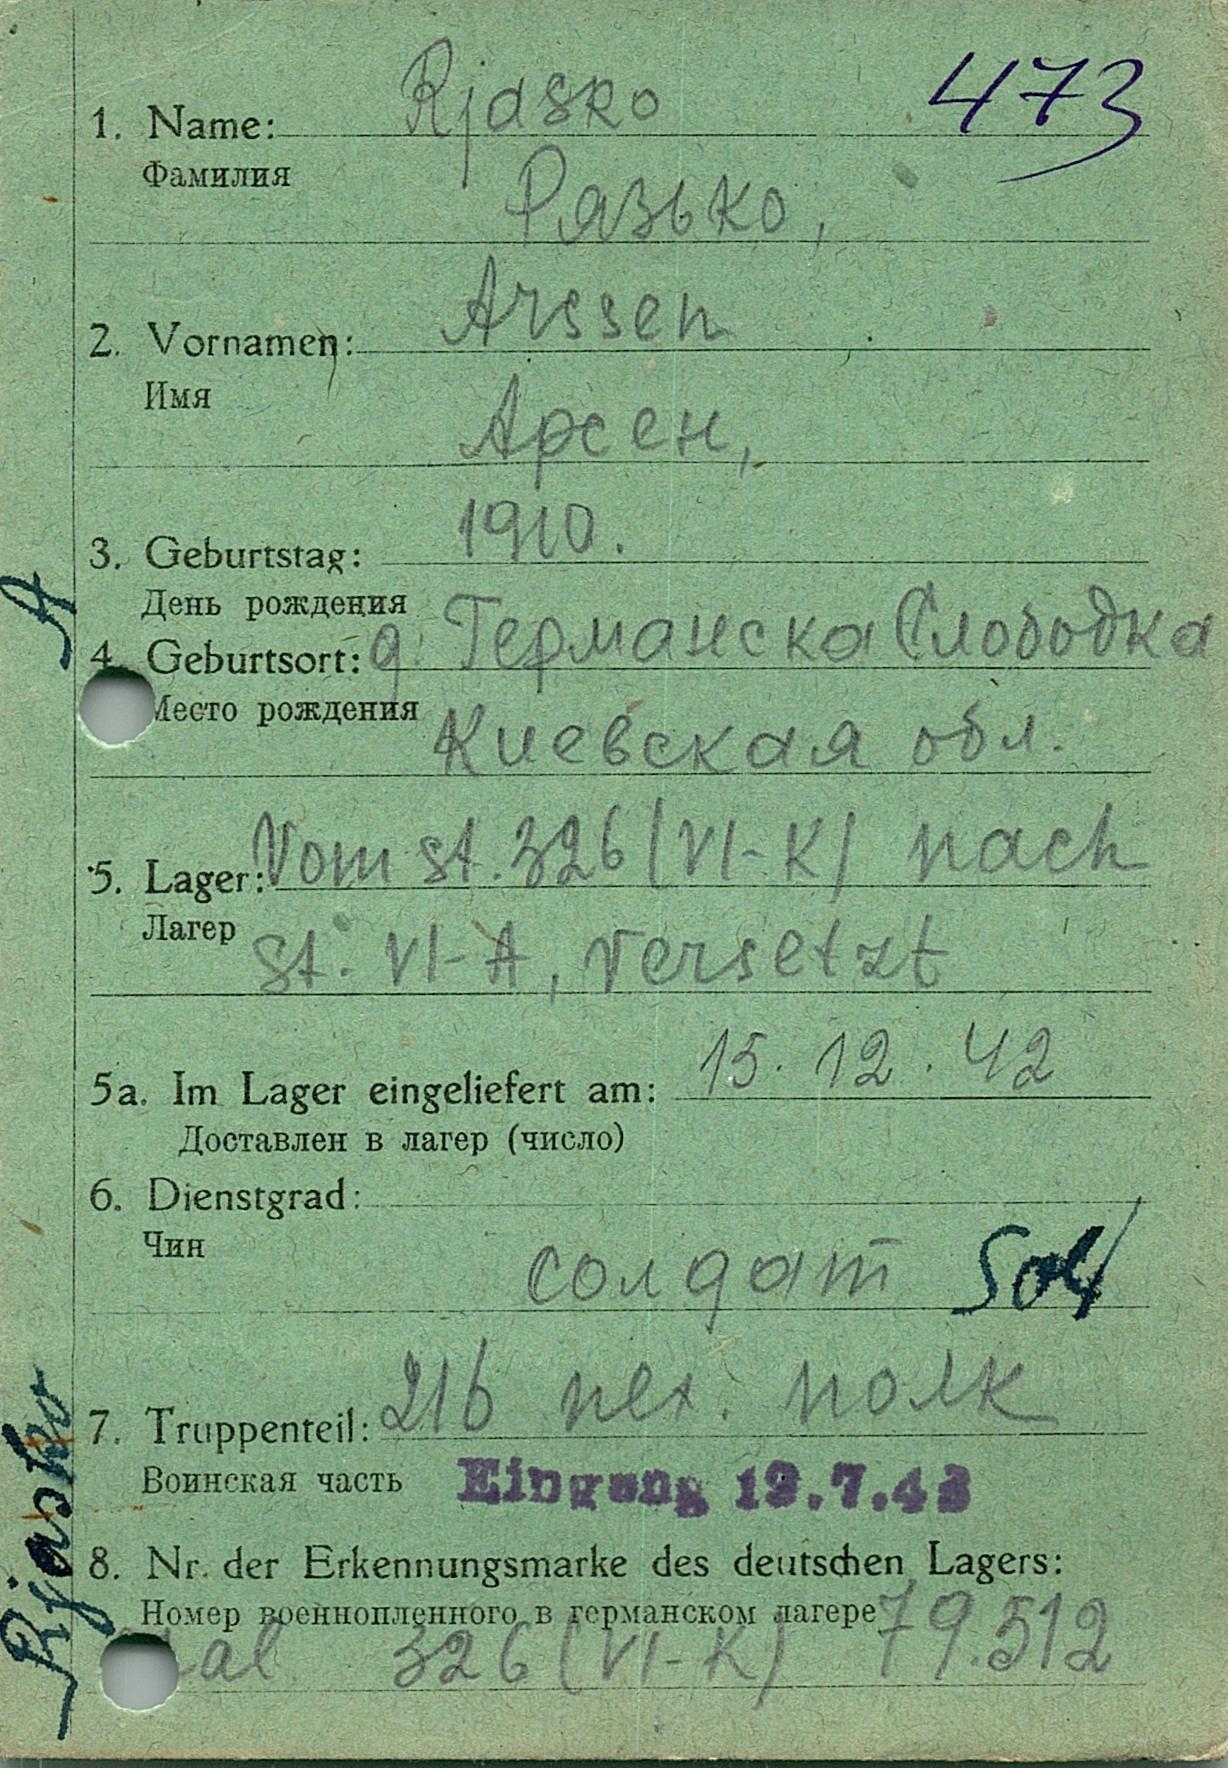 473
1. Name: Rjasko
Фамилия
Рязько,
2. Vornamen: Arssen
Имя
Арсен,
3. Geburtstag: 1910.
День рождения
4. Geburtsort: д. Германска Слободка
Место рождения
Киевская обл.
5. Lager: Vom St. 326 (VI-K) nach
Лагер
St. VI-A, versetzt
5a. Im Lager eingeliefert am: 15.12.42
Доставлен в лагер (число)
6. Dienstgrad:
Чин
солдат Sol
7. Truppenteil: 216 пех. полк
Воинская часть
Eingang 19.7.43
8. Nr. der Erkennungsmarke des deutschen Lagers:
Номер военнопленного в германском лагере 79.512
326 (VI-K)
A
Rjasko